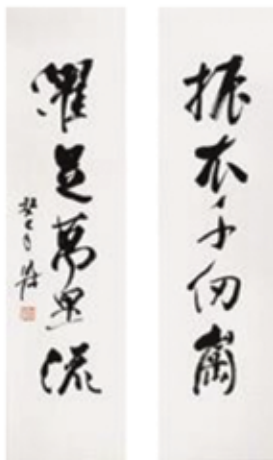 振衣千仞崗
濯足萬里流